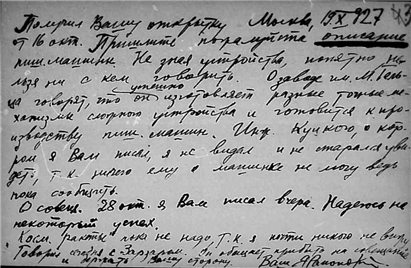 Получил Вашу открытку Москва, 19.X.927
от 16 окт. Пришлите пожалуйста описание
пиш. машины. Не зная устройства, понятно нель-
зя ни с кем говорить. О заводе им. М. Гель-
ца говорят, что он успешно изготовляет разные точные ме-
ханизмы сложного устройства и готовится к про-
изводству пиш. машин. Инж. Куцкого, о кото-
ром я Вам писал, я не видал и не старался уви-
деть, т.к. ничего ему о машинке не могу ведь
пока сообщить.
О совещ. 28 окт. я Вам писал вчера. Надеюсь на
некоторый успех.
т.к. я почти никого не вижу
Говорил вчера с Он обещает прибыть на совещание
и Вашу сторону. Ваш